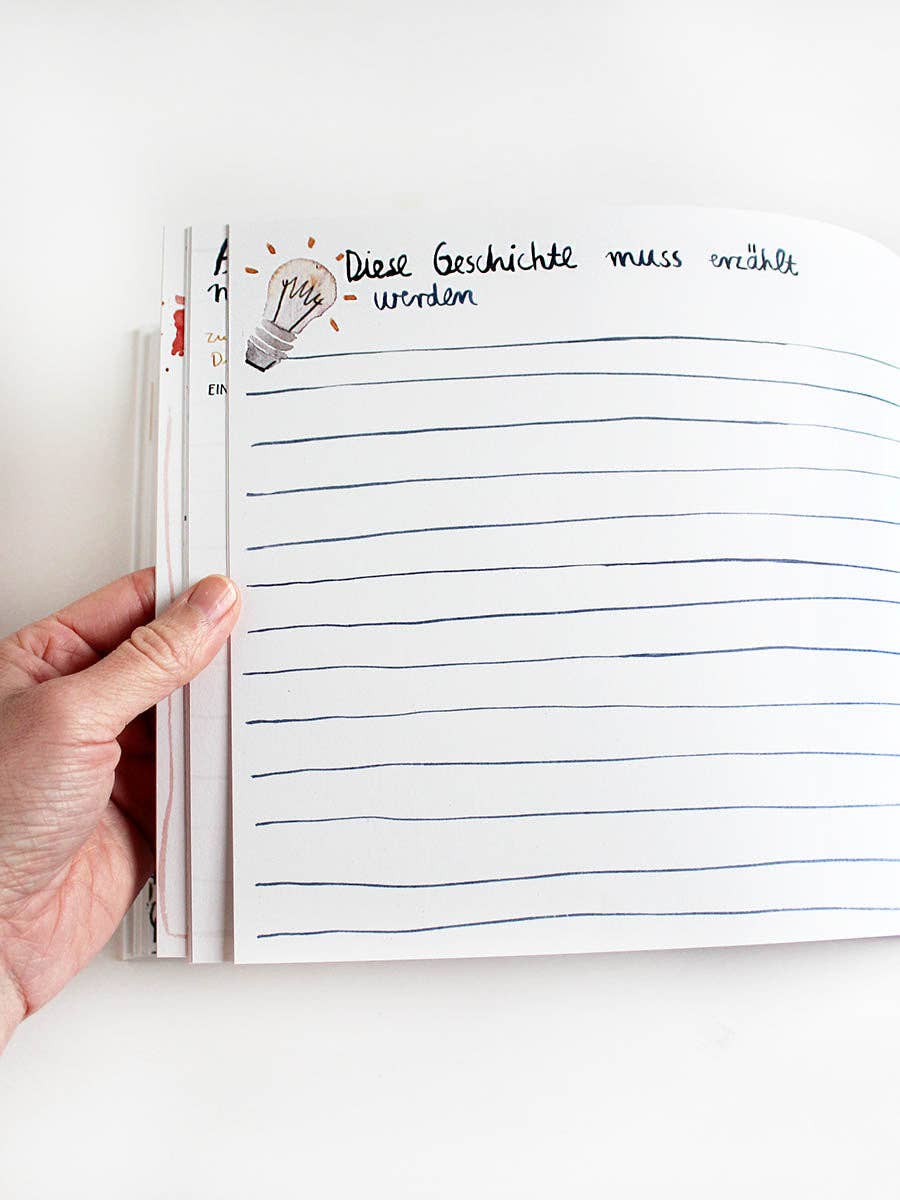 Diese Geschichte muss erzählt
werden
EIN